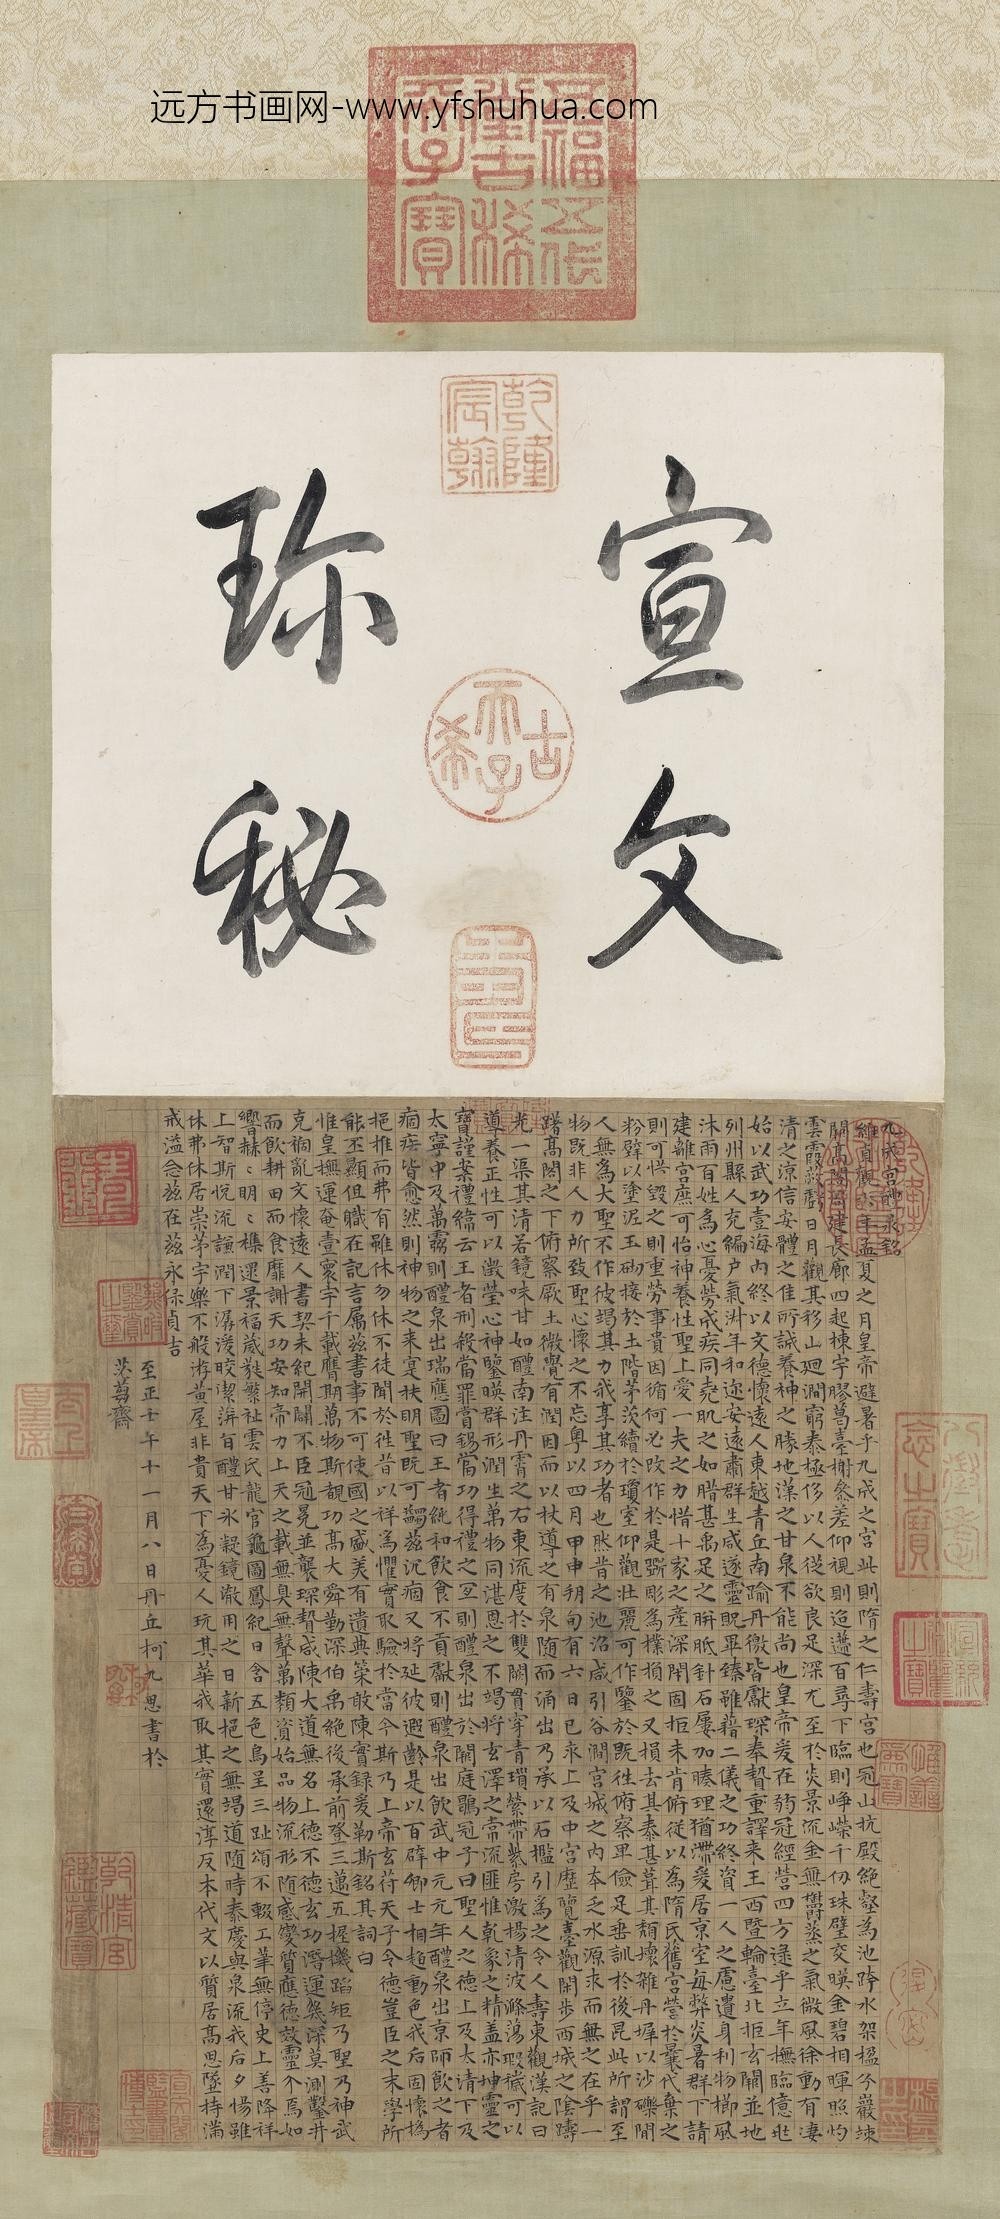 远方书画网-www.yfshuhua.com
五福五代
堂古稀
天子寶
乾隆
宸翰
宣文
珎秘
古
天子
希
壽
九成宮醴泉銘
維貞觀六年孟夏之月皇帝避暑乎九成之宮此則隋之仁壽宮也冠山抗殿絕壑為池跨水架楹分巖竦
闕高閣周建長廊四起棟宇膠葛臺榭參差仰視則迢遰百尋下臨則崢嶸千仞珠璧交暎金碧相暉照灼
雲霞蔽虧日月觀其移山廻澗窮泰極侈以人從欲良足深尤至於炎景流金無欝蒸之氣微風徐動有凄
清之涼信安體之佳所誠養神之勝地漢之甘泉不能尚也皇帝爰在弱冠經營四方逮乎立年撫臨億兆
始以武功壹海內終以文德懷遠人東越青丘南踰丹徼皆獻琛奉贄重譯来王西暨輪臺北拒玄闕並地
列州縣人充編戶氣淑年和迩安遠肅群生咸遂靈貺畢臻雖藉二儀之功終資一人之慮遺身利物櫛風
沐雨百姓為心憂勞成疾同堯肌之如腊甚禹足之胼胝針石屢加腠理猶滯爰居京室每弊炎暑群下請
建離宮庶可怡神養性聖上愛一夫之力惜十家之產深閉固拒未肯俯從以為隋氏舊宮營於曩代棄之
則可惜毀之則重勞事貴因循何必改作於是斲彫為樸損之又損去其泰甚葺其頹壞雜丹墀以沙礫間
粉壁以塗泥玉砌接於土階茅茨續於瓊室仰觀壯麗可作鑒於既往俯察卑儉足垂訓於後昆此所謂至
人無為大聖不作彼竭其力我享其功者也然昔之池沼咸引谷澗宮城之內本乏水源求而無之在乎一
物既非人力所致聖心懷之不忘粵以四月甲申朔旬有六日己亥上及中宮歷覽臺觀閑步西城之陰躊
躇高閣之下俯察厥土微覺有潤因而以杖導之有泉隨而涌出乃承以石檻引為之令人壽東觀漢記曰
光一渠其清若鏡味甘如醴南注丹霄之右東流度於雙闕貫穿青瑣縈帶紫房激揚清波滌蕩瑕穢可以
導養正性可以澂瑩心神鑒暎群形潤生萬物同湛恩之不竭將玄澤之常流匪惟乾象之精盖亦坤靈之
寶謹案禮緯云王者刑殺當罪賞錫當功得禮之宜則醴泉出於闕庭鶡冠子曰聖人之德上及太清下及
太寧中及萬靈則醴泉出瑞應圖曰王者純和飲食不貢獻則醴泉出飲武中元元年醴泉出京師飲之者
痼疾皆愈然則神物之来寔扶明聖既可蠲茲沉痼又將延彼遐齡是以百辟卿士相趨動色我后固懷撝
挹推而弗有雖休勿休不徒聞於往昔以祥為懼實取驗於當今斯乃上帝玄符天子令德豈臣之末學所
能丕顯但職在記言屬茲書事不可使國之盛美有遺典策敢陳實録爰勒斯銘其詞曰
惟皇撫運奄壹寰宇千載膺期萬物斯覩功高大舜勤深伯禹絕後承前登三邁五握機蹈矩乃聖乃神武
克禍亂文懷遠人書契未紀開闢不臣冠冕並襲琛贄咸陳大道無名上德不德玄功潛運幾深莫測鑿井
而飲耕田而食靡謝天功安知帝力上天之載無臭無聲萬類資始品物流形随感變質應德效靈介焉如
響赫〻明〻雜遝景福葳蕤繁祉雲氏龍官龜圖鳳紀日含五色烏呈三趾頌不輟工筆無停史上善降祥
上智斯悅流謙潤下潺湲皎潔蓱旨醴甘氷凝鏡澈用之日新挹之無竭道随時泰慶與泉流我后夕惕雖
休弗休居崇茅宇樂不般游黃屋非貴天下為憂人玩其華我取其實還淳反本代文以質居高思墜持滿
戒溢念茲在茲永保貞吉
至正壬午十一月八日丹丘柯九思書於
齋